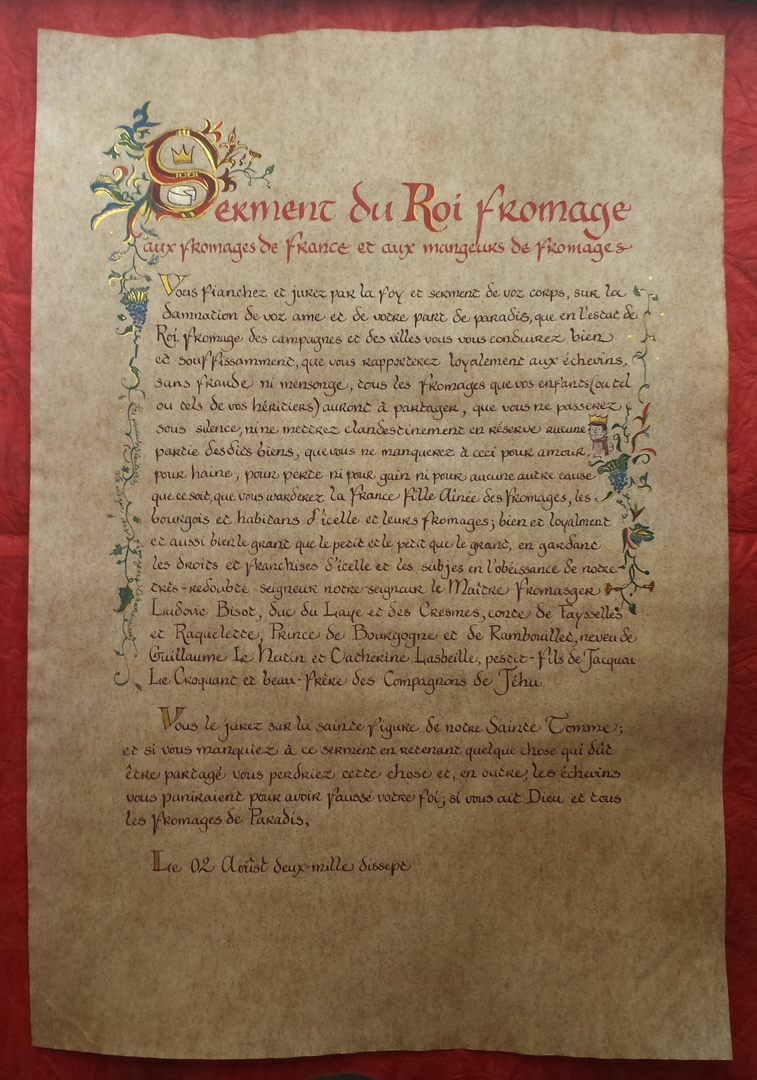 Serment du Roi fromage
aux fromages de france et aux mangeurs de fromages
Vous fianchez et jurez par la foy et serment de voz corps, sur la
damnation de voz ame et de votre part de paradis, que en l'estat de
Roi fromage des campagnes et des villes vous vous conduirez bien
et souffissamment, que vous rapporterez loyalement aux échevins,
sans fraude ni mensonge, tous les fromages que vos enfants (ou tel
ou tels de vos héritiers) auront à partager, que vous ne passerez
sous silence, ni ne mettrez clandestinement en réserve aucune
partie desdits biens, que vous ne manquerez à ceci pour amour,
pour haine, pour perte ni pour gain ni pour aucune autre cause
que ce soit, que vous warderez la France Fille Ainée des Fromages, les
bourgois et habitans d'icelle et leurs fromages; bien et loyalment
et aussi bien le grant que le petit et le petit que le grant, en gardant
les droits et franchises d'icelle et les subjes en l'obéissance de notre
très-redoubté seigneur notre seigneur le Maître Fromasger
Ludovic Bisot, duc du Laye et des Cresmes, conte de Faysselles
et Raquelette, Prince de Bourgogne et de Rambouillet, neveu de
Guillaume Le Hutin et Catherine Lasbeille, pestit-fils de Jacquou
Le Croquant et beau-frère des Compagnons de Jéhu.
Vous le jurez sur la sainte figure de notre Sainte Tomme;
et si vous manquiez à ce serment en retenant quelque chose qui dût
être partagé vous perdriez cette chose et, en outre, les échevins
vous puniraient pour avoir faussé votre foi; si vous ait Dieu et tous
les fromages de Paradis.
Le 02 Aoûst deux-mille dissept